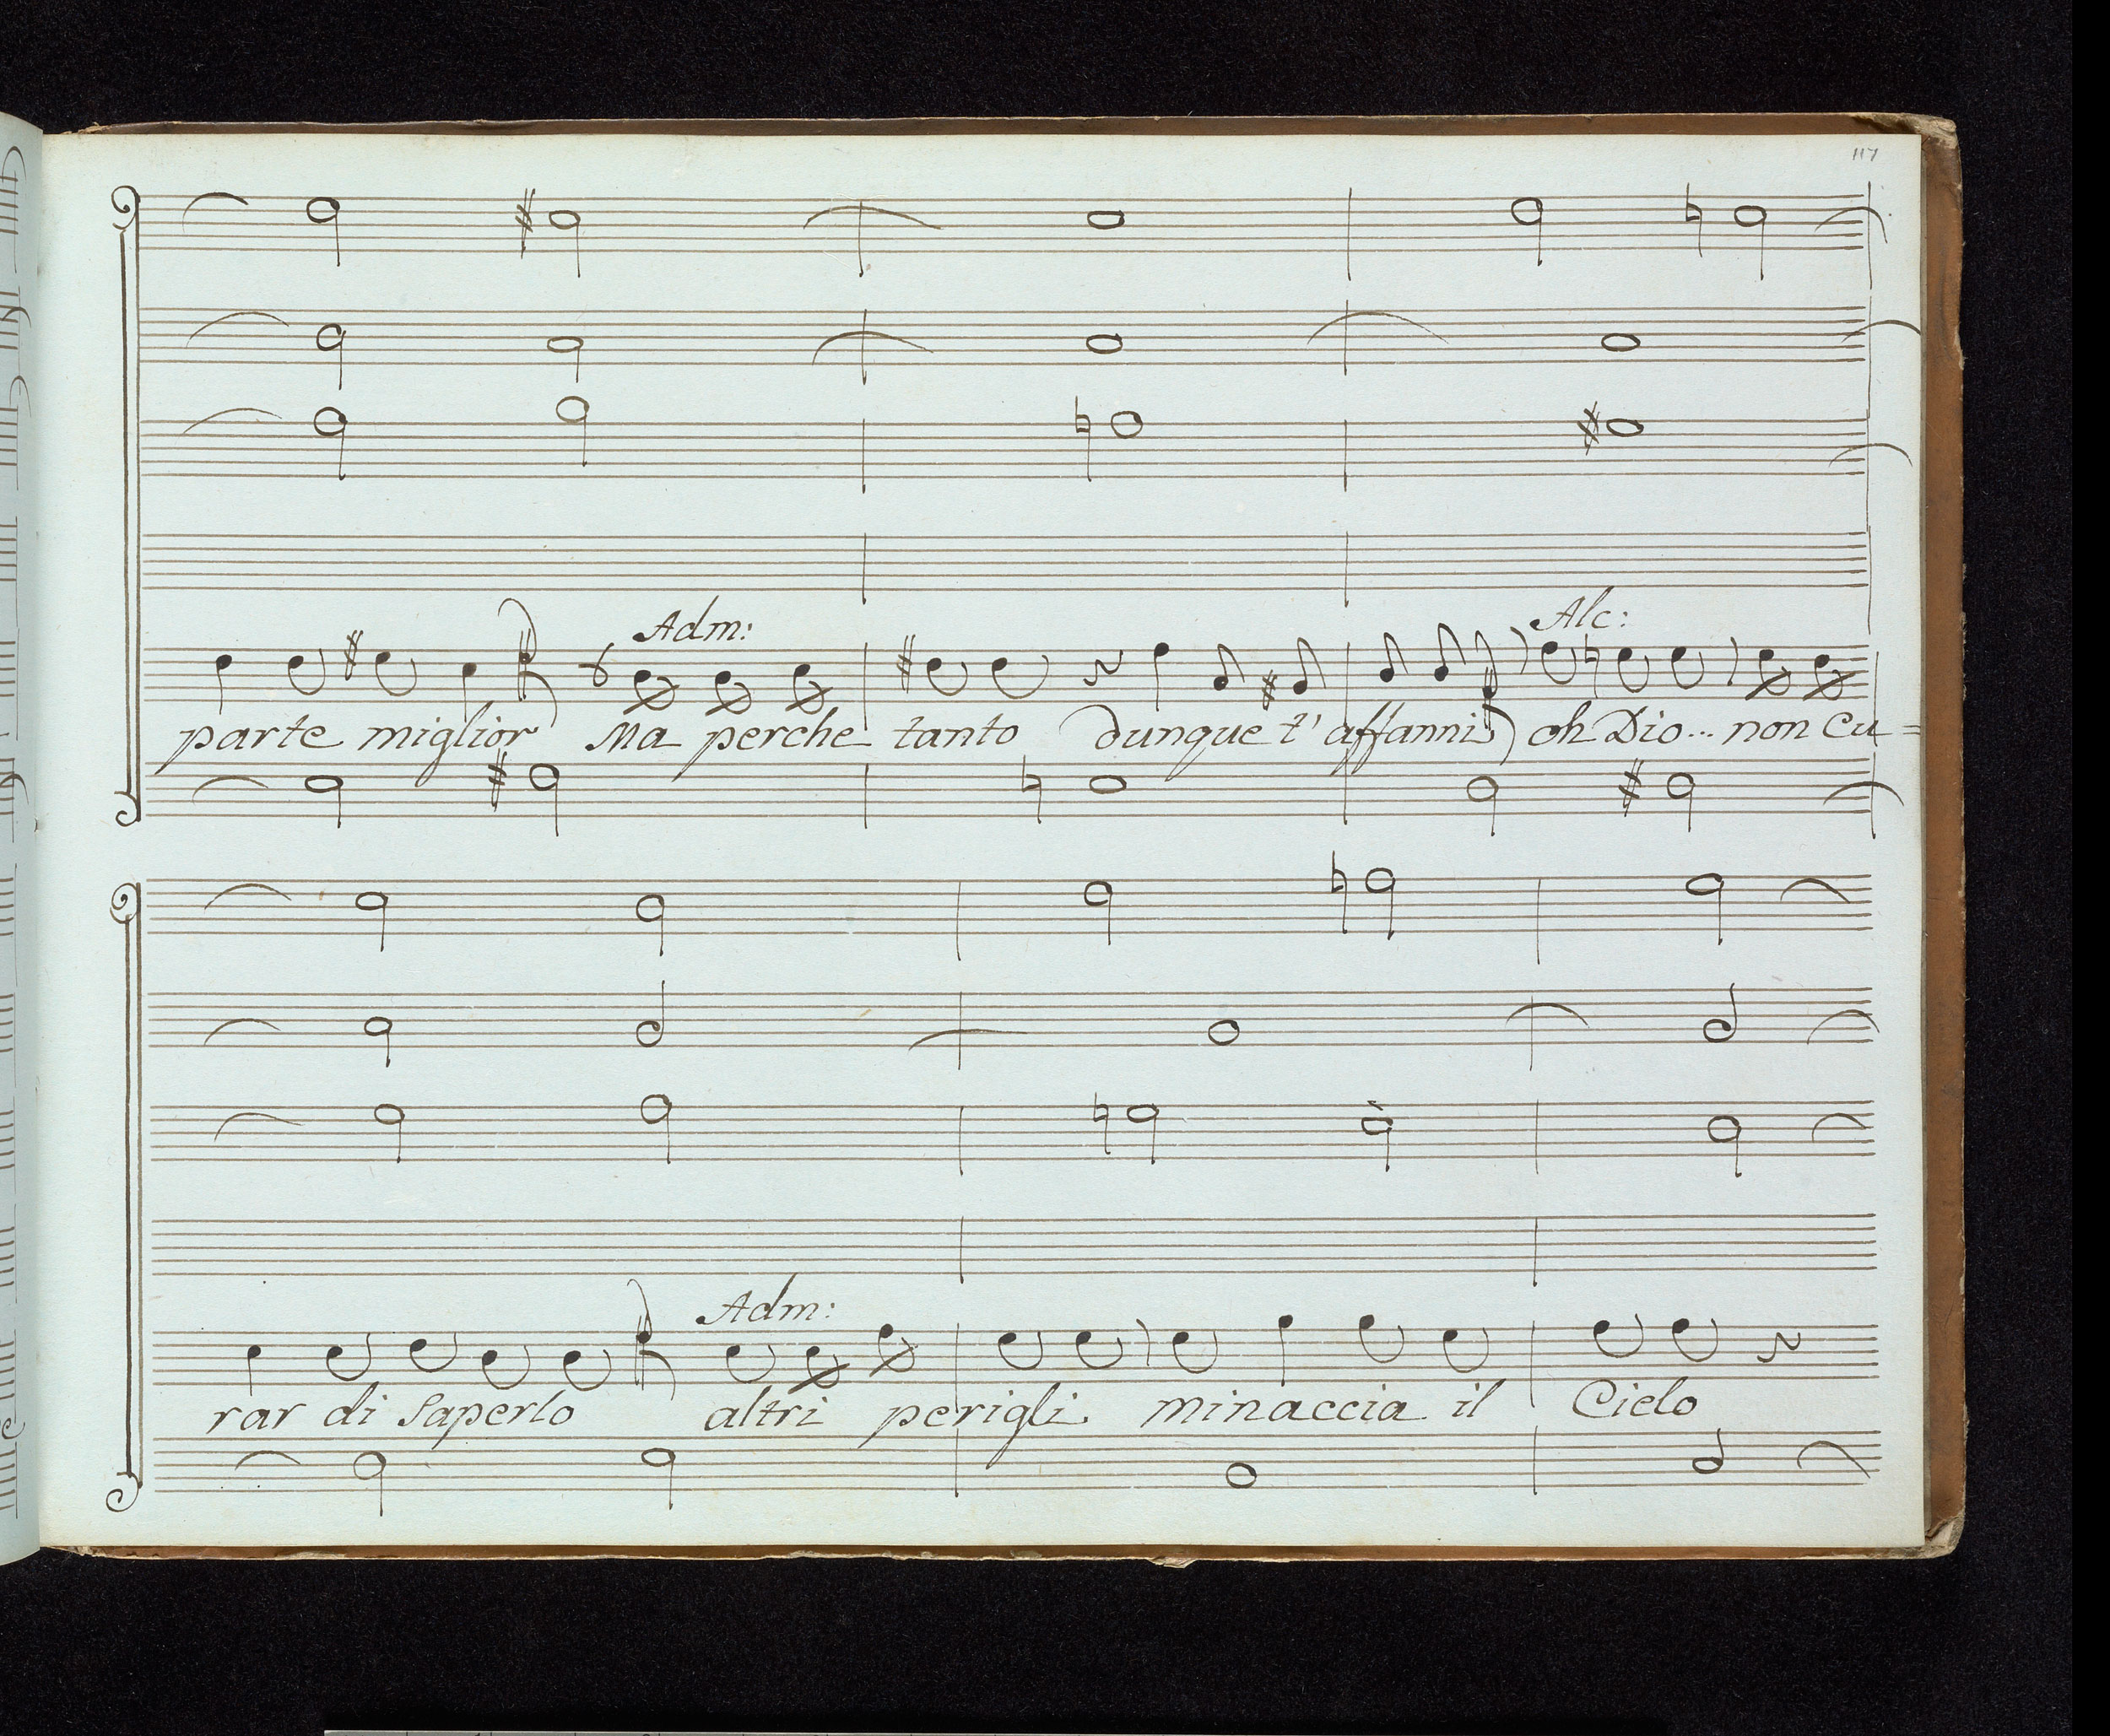 117
Adm: Alc:
parte miglior Ma perche tanto dunque t' affanni oh Dio... non Cu=
Adm:
rar di Saperlo altri perigli minaccia il Cielo